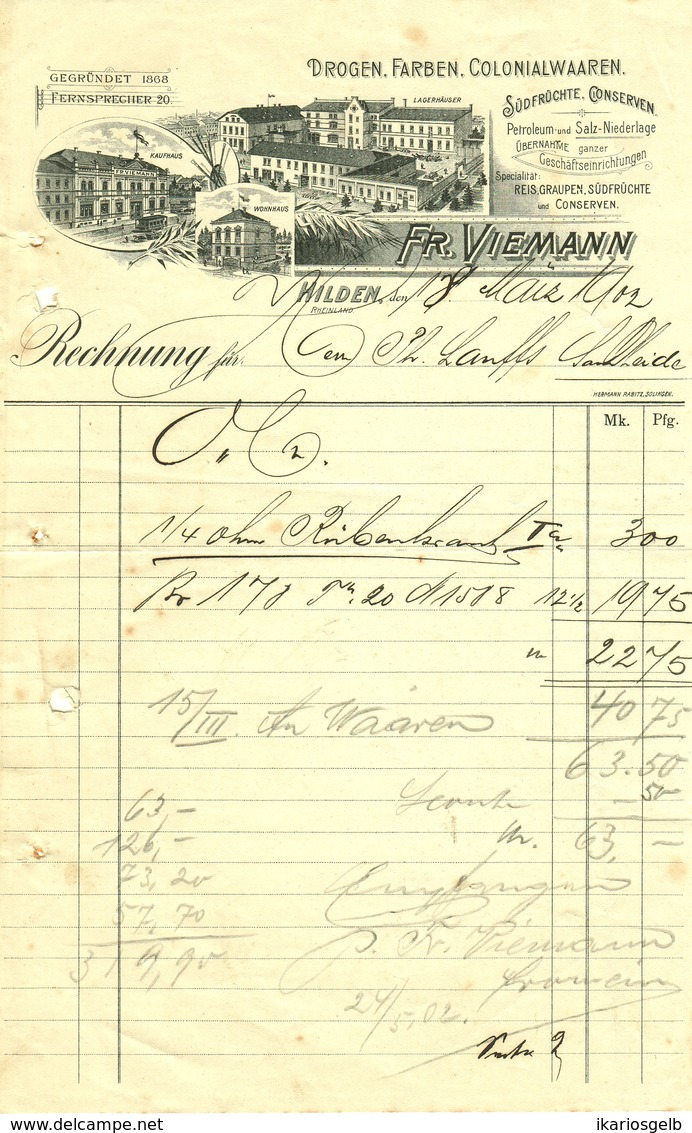 GEGRÜNDET 1868
FERNSPRECHER 20.
DROGEN, FARBEN, COLONIALWAAREN.
LAGERHÄUSER
KAUFHAUS
FR. VIEMANN
WOHNHAUS
SÜDFRÜCHTE, CONSERVEN,
Petroleum- und Salz-Niederlage
ÜBERNAHME ganzer
Geschäftseinrichtungen
Specialität:
REIS, GRAUPEN, SÜDFRÜCHTE
und CONSERVEN.
FR. VIEMANN
HILDEN, den 18. März 1902
RHEINLAND
Rechnung für Ph. Lauffs Sandheide
HERMANN RABITZ, SOLINGEN.
Mk. Pfg.
1/4 Ohm Rübenkraut Ia 3 00
Br 178 Tr. 20 N 158 12 1/2 19 75
m 22 75
15/III. An Waaren 40 75
63.50
Sconto – 50
M. 63, –
63,–
126,–
73,20
57,70
319,90
Empfangen
p. Fr. Viemann
24/5.02.